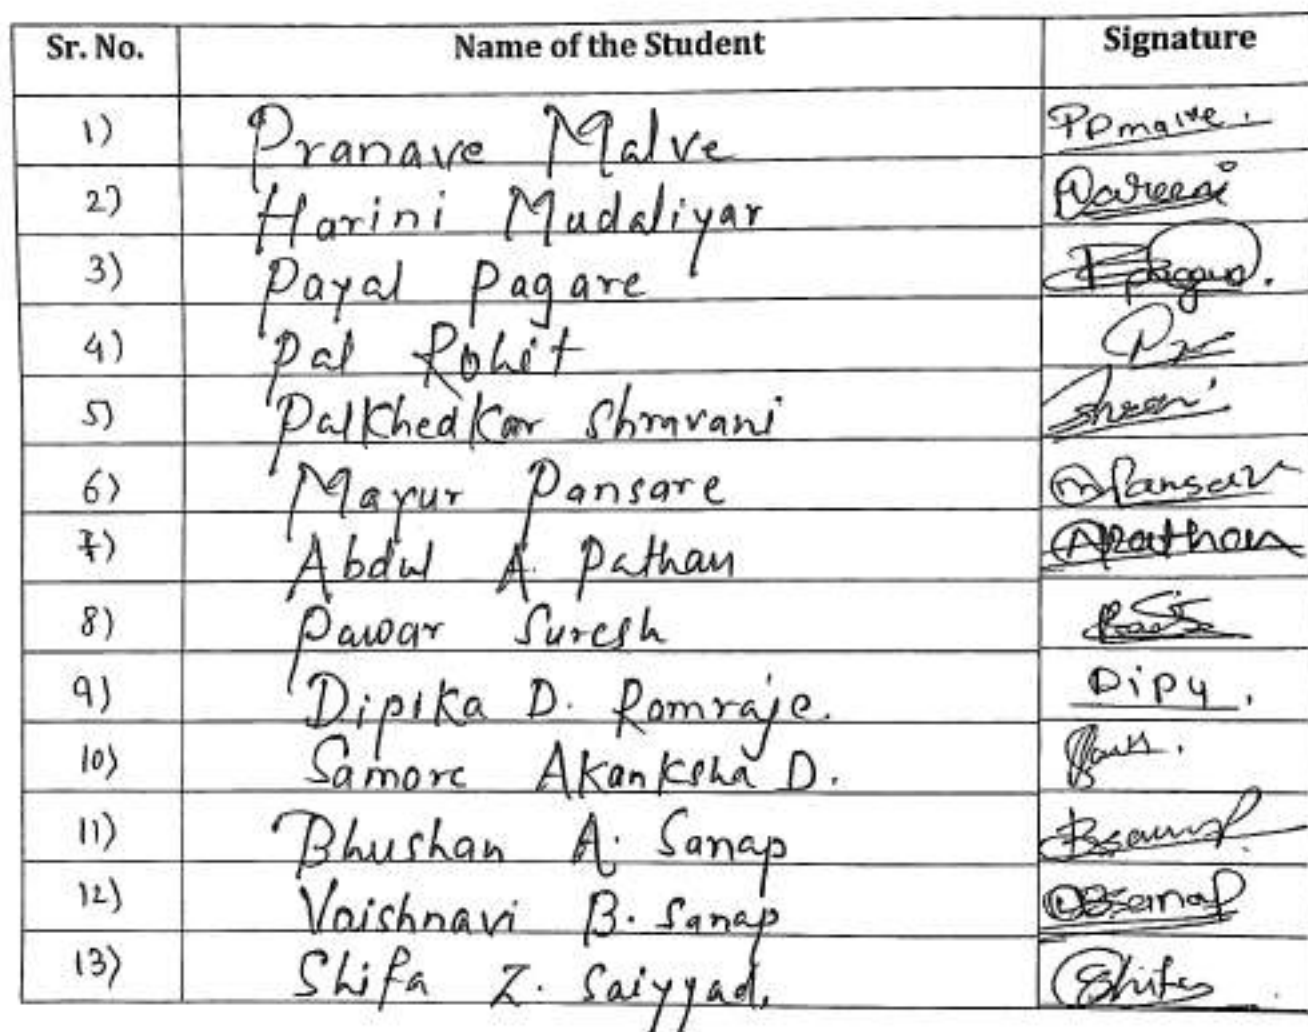 Sr. No. Name of the Student Signature
1) Pranave Malve PDmalve.
2) Harini Mudaliyar
3) Payal Pagare Ppagare.
4) Pal Rohit
5) Palkhedkar Shravani
6) Mayur Pansare MPansare
7) Abdul A. Pathan APathan
8) Pawar Suresh
9) Dipika D. Romraje. Dipu.
10) Samore Akanksha D.
11) Bhushan A. Sanap BSanap.
12) Vaishnavi B. Sanap
13) Shifa Z. Saiyyad. Shifa